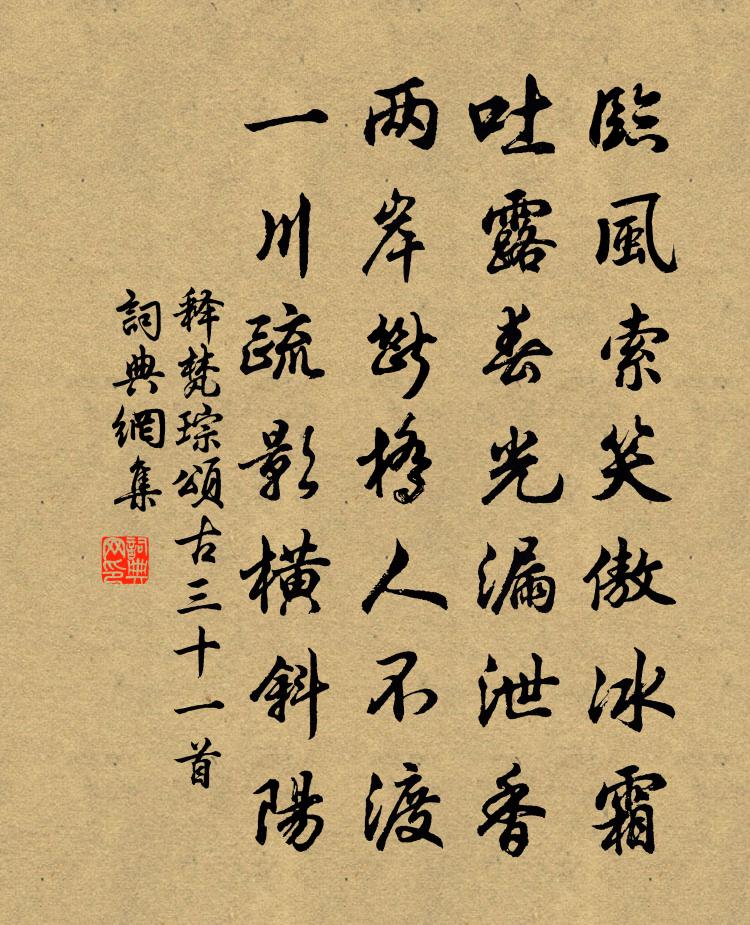 臨風索笑傲冰霜
吐露春光漏泄香
兩岸斷橋人不渡
一川疏影橫斜陽
释梵琮頌古三十一首
詞典網集
詞典网印